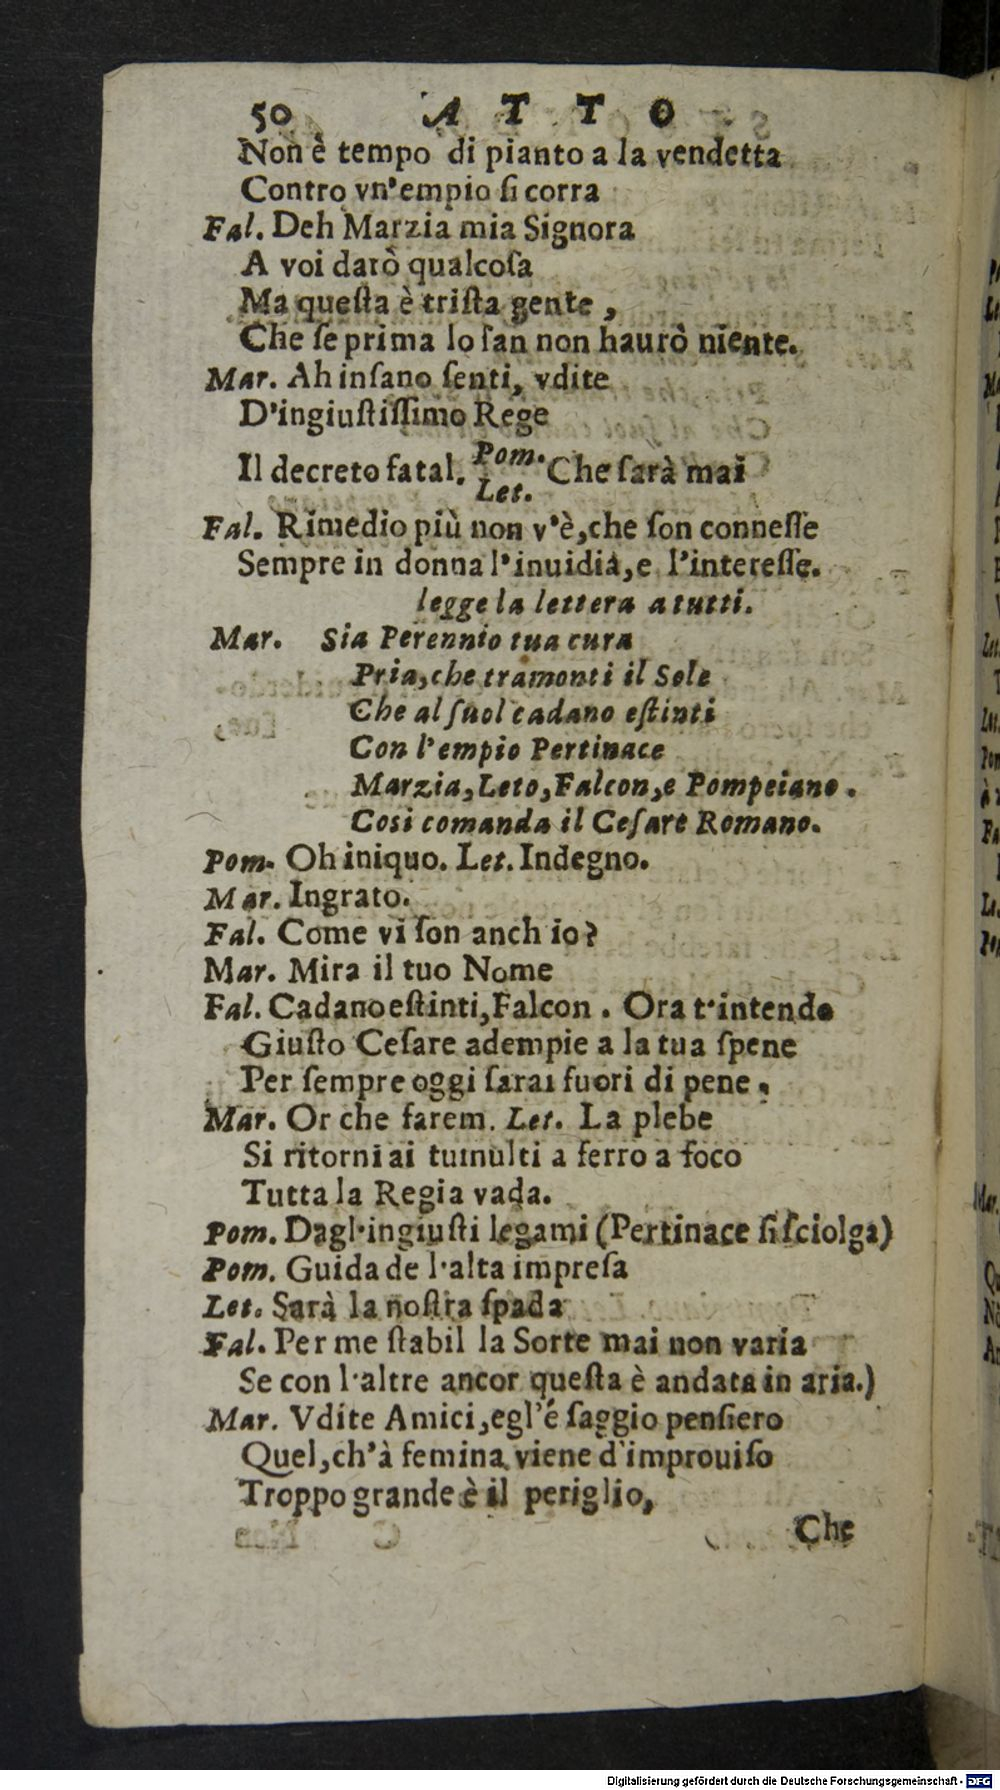 50 ATTO
Non è tempo di pianto a la vendetta
Contro vn'empio ſi corra
Fal. Deh Marzia mia Signora
A voi darò qualcoſa
Ma queſta è triſta gente,
Che ſe prima lo ſan non haurò niente.
Mar. Ah inſano ſenti, vdite
D'ingiuſtiſſimo Rege
Il decreto fatal. Pom. Let. Che ſarà mai
Fal. Rimedio più non v'è, che ſon conneſſe
Sempre in donna l'inuidia, e l'intereſſe.
legge la lettera a tutti.
Mar. Sia Perennio tua cura
Pria, che tramonti il Sole
Che al ſuol cadano eſtinti
Con l'empio Pertinace
Marzia, Leto, Falcon, e Pompeiano.
Cosi comanda il Ceſare Romano.
Pom. Oh iniquo. Let. Indegno.
Mar. Ingrato.
Fal. Come vi ſon anch io?
Mar. Mira il tuo Nome
Fal. Cadano eſtinti, Falcon. Ora t'intendo
Giuſto Ceſare adempie a la tua ſpene
Per ſempre oggi ſarai fuori di pene.
Mar. Or che farem. Let. La plebe
Si ritorni ai tumulti a ferro a foco
Tutta la Regia vada.
Pom. Dagl'ingiuſti legami (Pertinace ſi ſciolga)
Pom. Guida de l'alta impreſa
Let. Sarà la noſtra ſpada
Fal. Per me ſtabil la Sorte mai non varia
Se con l'altre ancor queſta è andata in aria.)
Mar. Vdite Amici, egl'é ſaggio penſiero
Quel, ch'à femina viene d'improuiſo
Troppo grande è il periglio,
Che
Digitalisierung gefördert durch die Deutsche Forschungsgemeinschaft - DFG